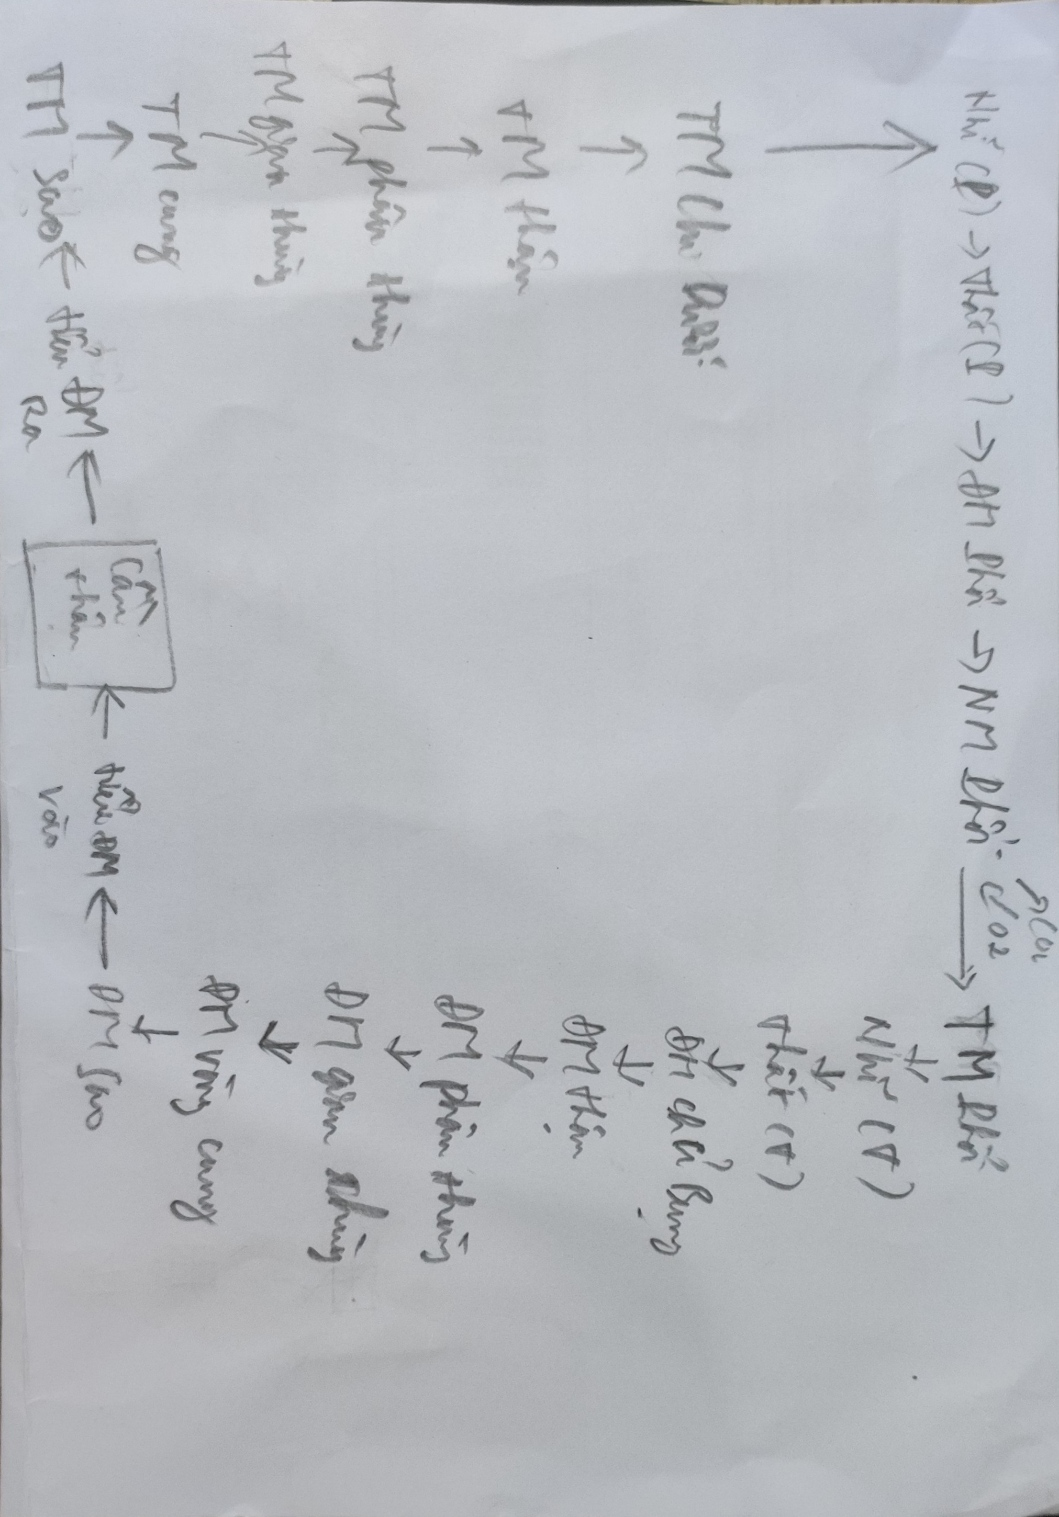 Nhĩ (P) → Thất (P) → ĐM Phổi → NM Phổi - CO2
→ TM Phổi
Nhĩ (T)
Thất (T)
ĐM chủ Bụng
ĐM thận
ĐM phân thùy
ĐM gian thùy
ĐM vòng cung
ĐM Sao
tiểu ĐM
vào
Cầu
thận
tiểu ĐM
Ra
TM Sao
TM cung
TM gian thùy
TM phân thùy
TM thận
TM Chủ Dưới